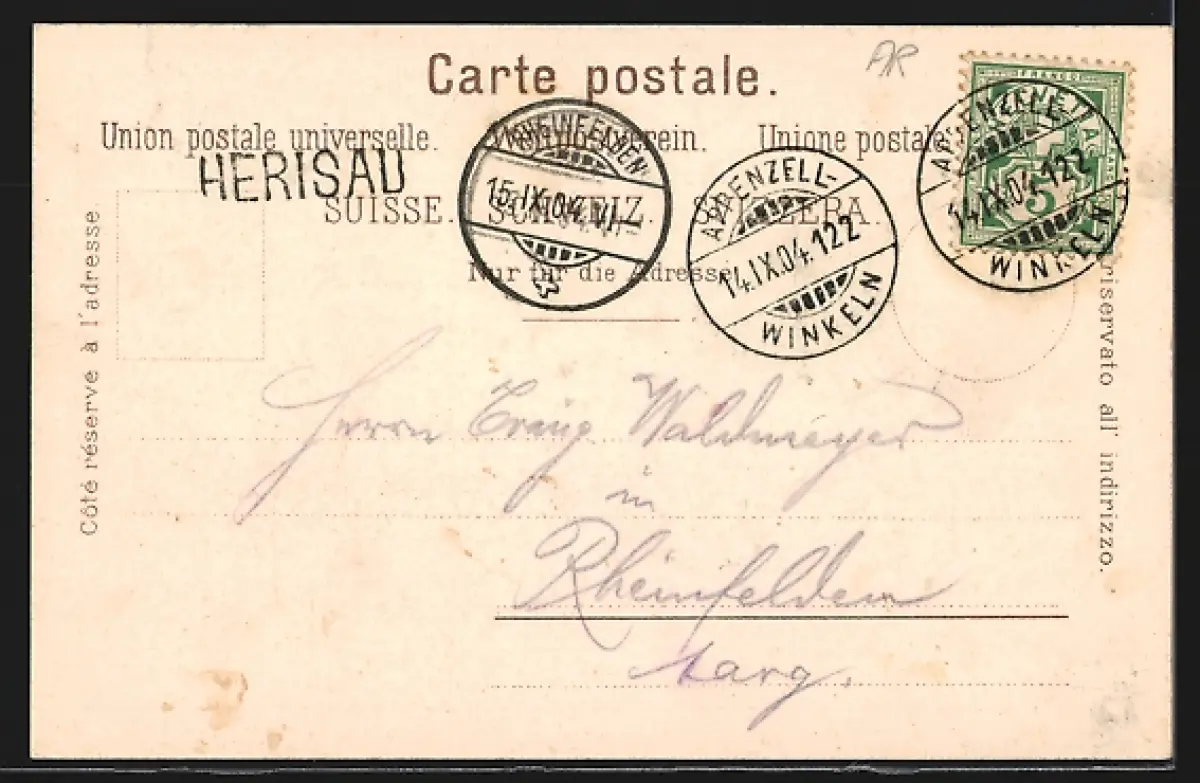 Carte postale.
AR
Union postale universelle. Weltpostverein. Unione postale
HERISAU
SUISSE. SCHWEIZ. SVIZZERA.
Nur für die Adresse.
RHEINFELDEN
15.IX.04.VI
APPENZELL-
14.IX.04.122
WINKELN
FRANCO
HELVETIA
5
APPENZELL-
14.IX.04.122
WINKELN
Côté réservé à l'adresse
riservato all' indirizzo.
Herrn Waldmeyer
in
Rheinfelden
Aarg.